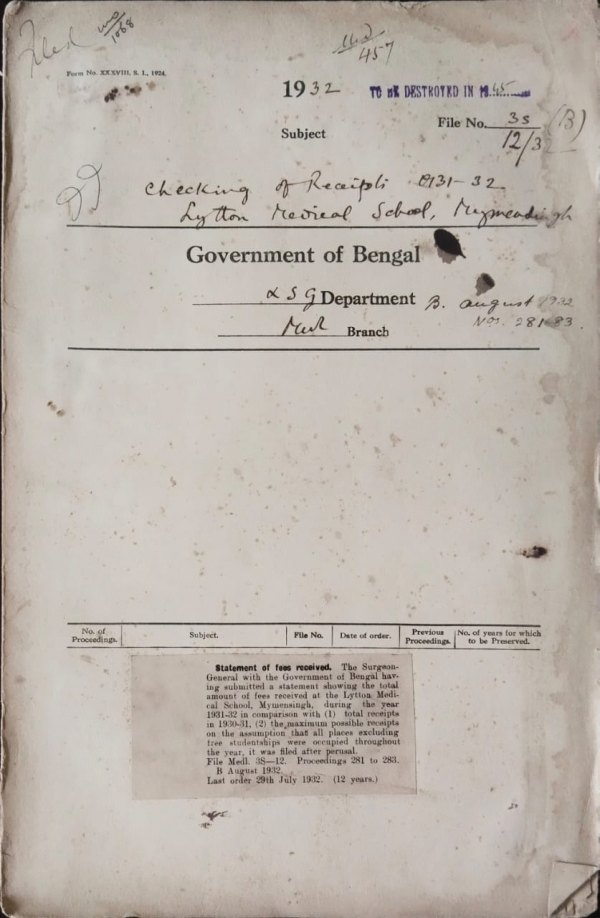 Filed
1068
457
Form No. XXXVIII, S. I., 1924.
1932 TO BE DESTROYED IN 1945
File No. 3S (B)
12/32
Subject
Checking of Receipts 1931-32
Lytton Medical School, Mymensingh
Government of Bengal
L S G Department B. August 1932
Nos. 281-83.
Medl Branch
No. of Proceedings. Subject. File No. Date of order. Previous Proceedings. No. of years for which to be Preserved.
Statement of fees received. The Surgeon-
General with the Government of Bengal hav-
ing submitted a statement showing the total
amount of fees received at the Lytton Medi-
cal School, Mymensingh, during the year
1931-32 in comparison with (1) total receipts
in 1930-31, (2) the maximum possible receipts
on the assumption that all places excluding
free studentships were occupied throughout
the year, it was filed after perusal.
File Medl. 3S—12. Proceedings 281 to 283.
B August 1932.
Last order 29th July 1932. (12 years.)